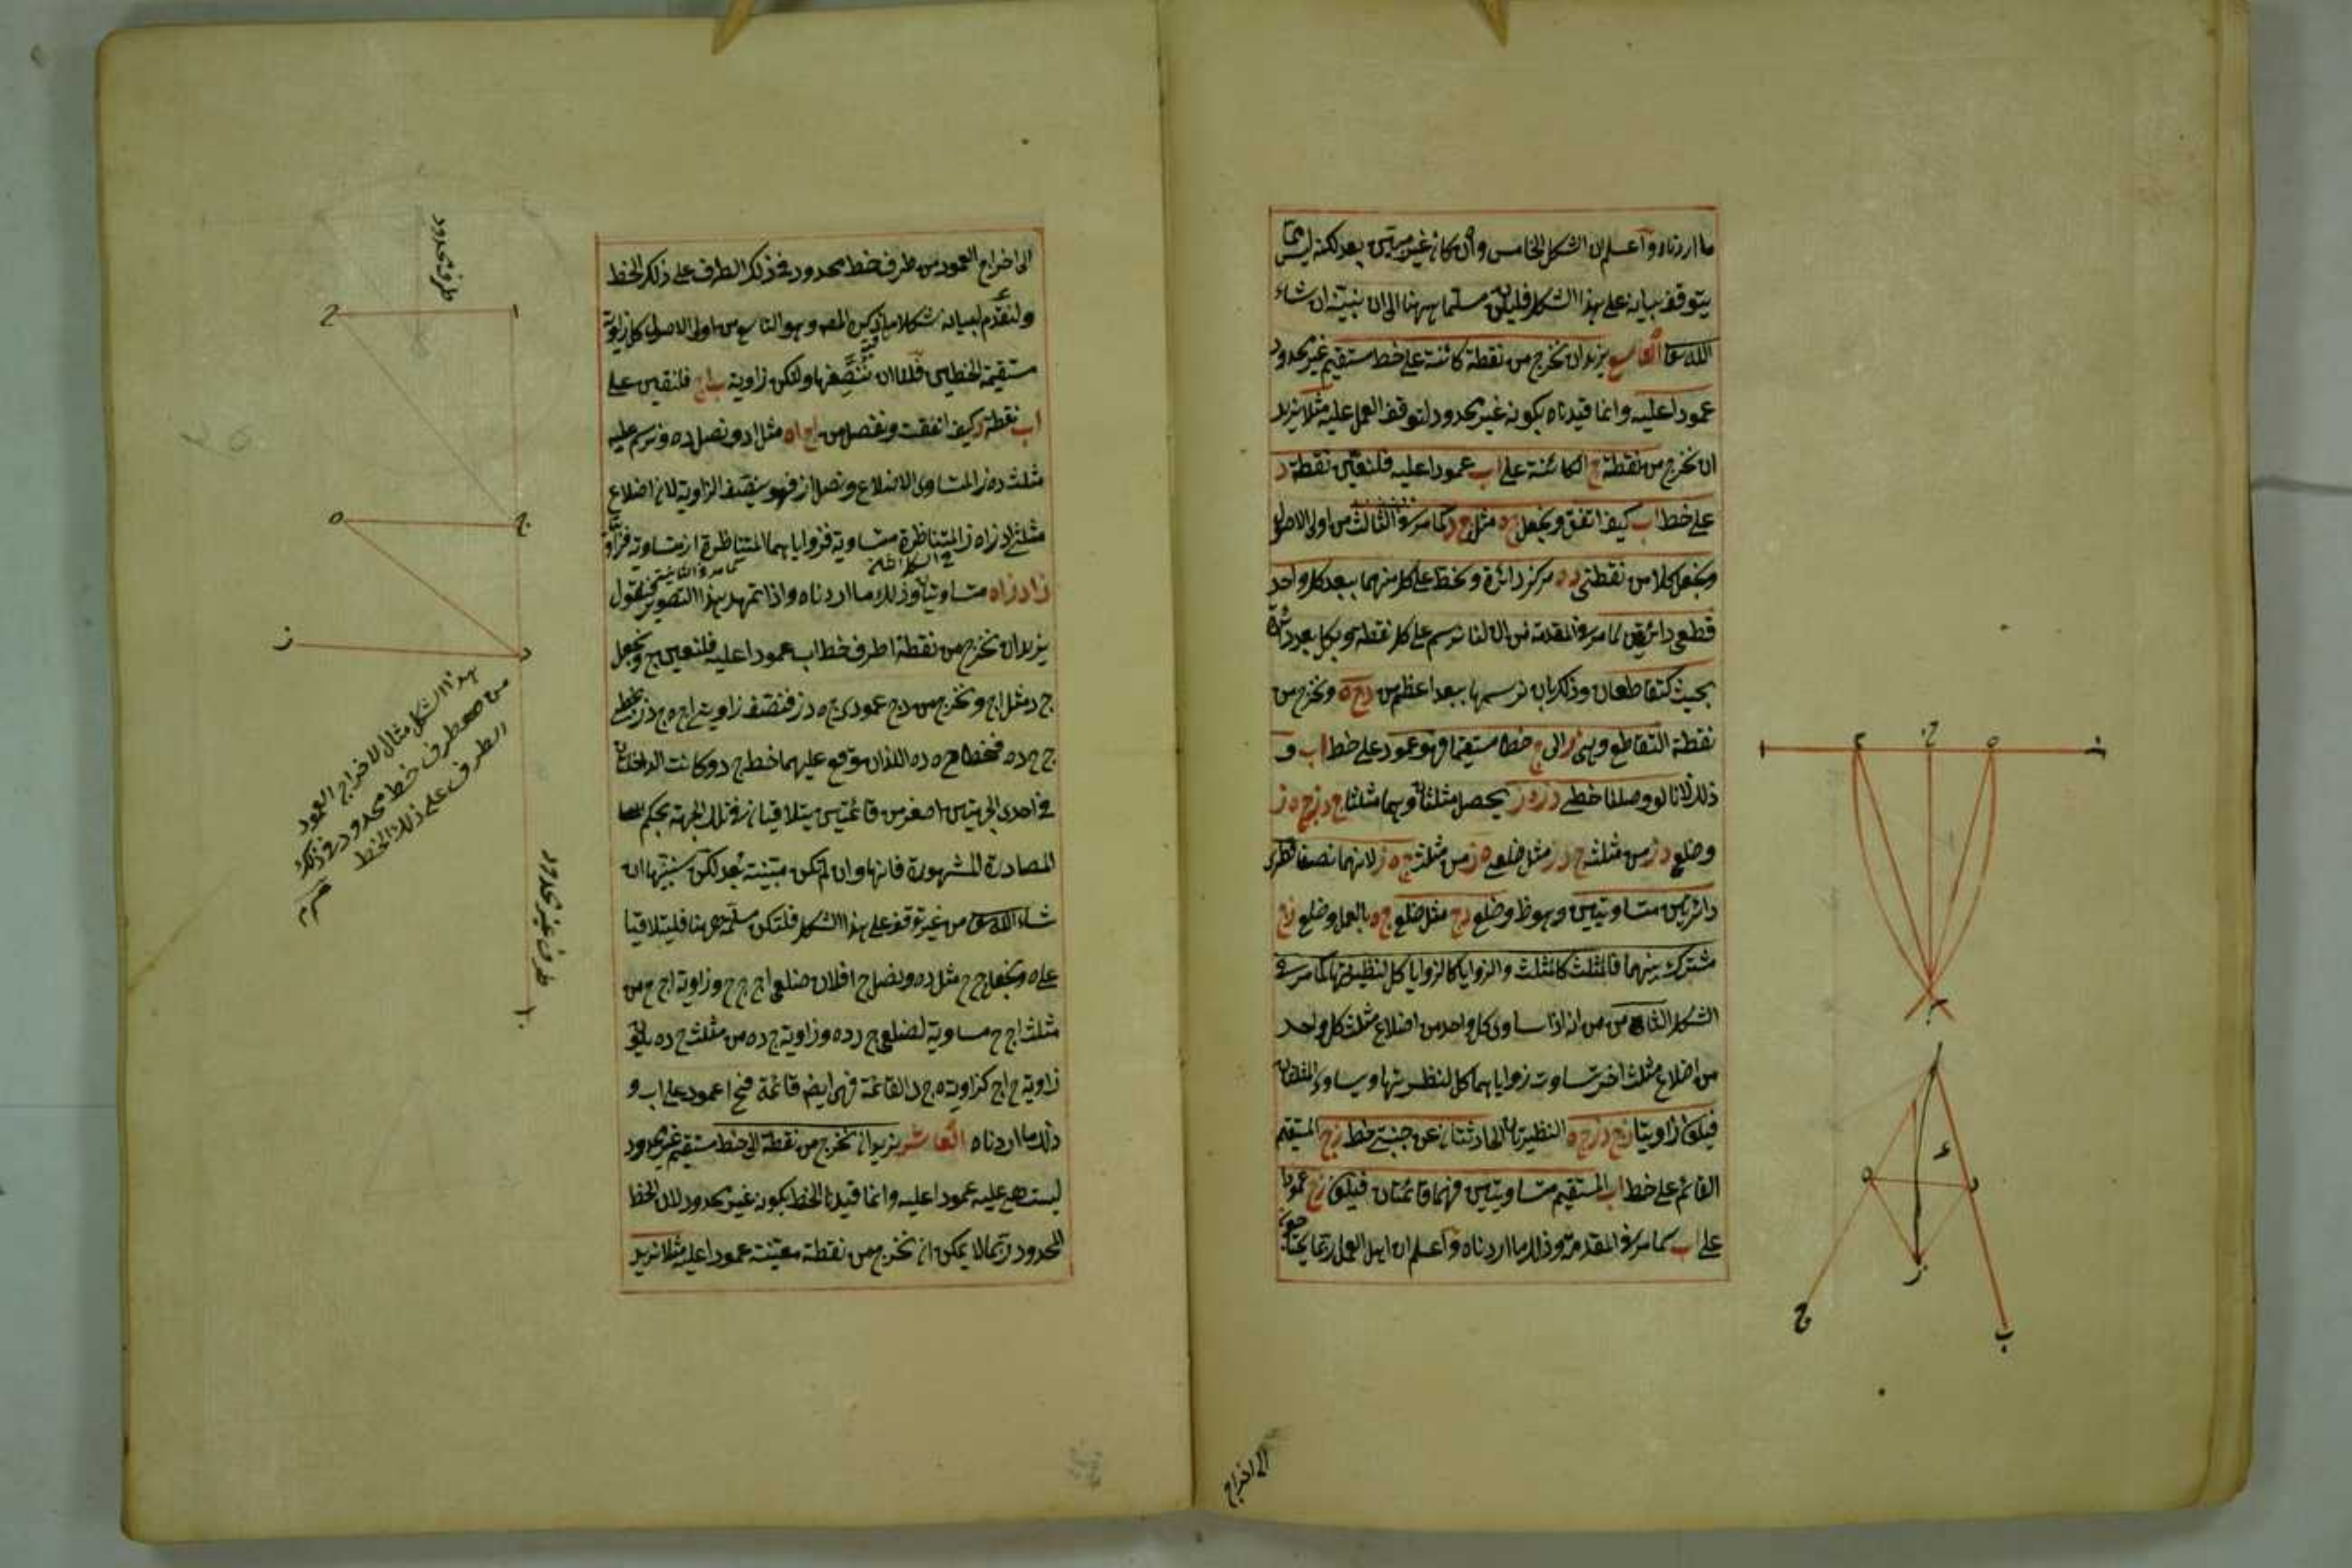 ما اردناه واعلم ان الشكل الخامس وان كان غير مبين بعد لكنه ليس مما
يتوقف بيانه على هذا الشكل فليكن مسلما ههنا الى ان نبينه ان شاء
الله تعا التاسع نريد ان نخرج من نقطة كائنة على خط مستقيم غير محدود
عمودا عليه وانما قيدناه بكونه غير محدود لتوقف العمل عليه مثلا نريد
ان نخرج من نقطة ج الكائنة على اب عمودا عليه فلنعين نقطة د
على خط اب كيف اتفق ونجعل ج ه مثل ج د كما مر في الثالث من اولى الاصول
ونجعل كلا من نقطتي د ه مركز دائرة ونخط على كل منهما ببعد كل واحد
قطعي دائرتين كما مر في المقدمة من ان لنا نرسم على كل نقطة وبكل بعد دائرة
بحيث تتقاطعان وذلك بان نرسمها ببعد اعظم من د ج ه ونخرج من
نقطة التقاطع وهي ز الى ج خطا مستقيما فهو عمود على خط اب و
ذلك لانا لو وصلنا خطي د ز ه ز يحصل مثلثان وهما مثلثا ج د ز ج ه ز
وضلع د ز من مثلث ج د ز مثل ضلع ه ز من مثلث ج ه ز لانهما نصفا قطري
دائرتين متساويتين وهو ظ وضلع د ج مثل ضلع ج ه بالعمل وضلع ز ج
مشترك بينهما فالمثلث كالمثلث والزوايا كالزوايا كل لنظيرتها كما مر في
الشكل الثامن من انه اذا ساوى كل واحد من اضلاع مثلث كل واحد
من اضلاع مثلث اخر تساوت زواياهما كل لنظيرتها وتساوى المثلثان
فيكون زاويتا ز ج د ز ج ه النظيرتان الحادثتان عن جنبتي خط ز ج المستقيم
القائم على خط اب المستقيم متساويتين فهما قائمتان فيكون ز ج عمودا
على اب كما مر في المقدمة وذلك ما اردناه واعلم ان اهل العمل ربما يحتاجون
الى اخراج
ا
ج
ه
ب
ز
ا
ء
ه
د
ز
ج
ب
الى اخراج العمود من طرف خط محدود في ذلك الطرف على ذلك الخط
ولنقدم لبيانه شكلا ما ذكره المص وهو التاسع من اولى الاصول كل زاوية
مستقيمة الخطين فلنا ان ننصفها ولتكن زاوية ب ا ج فلنعين على
اب نقطة د كيف اتفقت ونفصل من اج اه مثل اد ونصل د ه ونرسم عليه
مثلث د ه ز المتساوى الاضلاع ونصل از فهو ينصف الزاوية لان اضلاع
مثلثي اد ز اه ز المتناظرة متساوية فزواياهما المتناظرة متساوية فزاويتا
ز اد ز اه متساويتان وذلك ما اردناه واذا تمهد هذا التصوير فنقول
نريد ان نخرج من نقطة ا طرف خط اب عمودا عليه فلنعين ج ونجعل
ج د مثل اج ونخرج من د ج عمودى ج ه د ز فننصف زاويتي اج ه ج د ز بخطي
ج ح د ه فخطا ج ه د ه اللذان وقع عليهما خط ج د وكانت الداخلتان
في احدى الجهتين اصغر من قائمتين يتلاقيان في تلك الجهة بحكم
المصادرة المشهورة فانها وان لم تكن مبينة بعد لكن سنبينها ان
شاء الله تعا من غير توقف على هذا الشكل فلتكن مسلمة ههنا فليتلاقيا
على ه ونجعل ج ح مثل د ه ونصل ح ا فلان ضلعي اج ج ح وزاوية اج ح من
مثلث اج ح مساوية لضلعي ج د د ه وزاوية ج د ه من مثلث ج د ه يكون
زاوية ح اج كزاوية ه ج د القائمة فهي ايضا قائمة فح ا عمود على اب و
ذلك ما اردناه العاشر نريد ان نخرج من نقطة الى خط مستقيم غير محدود
ليست هي عليه عمودا عليه وانما قيدنا الخط بكونه غير محدود لان الخط
المحدود ربما لا يمكن ان نخرج من نقطة معينة عمودا عليه مثلا نريد
طرف محدود
ح
ا
ه
ج
ز
د
هذا الشكل مثال لاخراج العمود
من طرف خط محدود في ذلك
الطرف على ذلك الخط
طرف غير محدود
ب